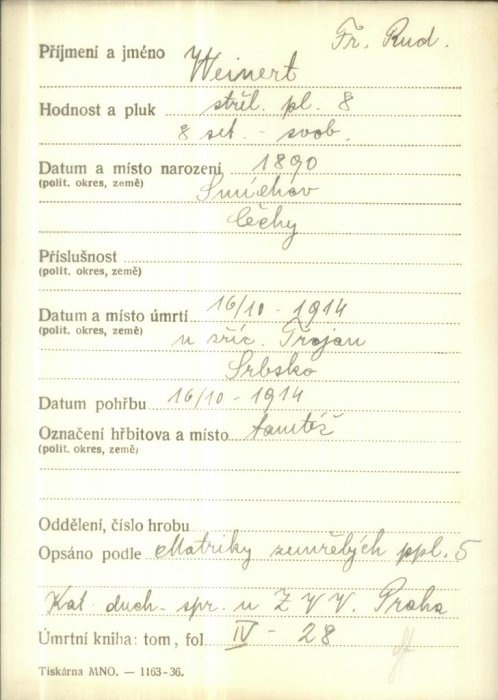 Fr. Rud.
Příjmení a jméno Weinert
Hodnost a pluk střel. pl. 8
8 set. - svob.
Datum a místo narození 1890
(polit. okres, země) Smíchov
Čechy
Příslušnost
(polit. okres, země)
Datum a místo úmrtí 16/10 - 1914
(polit. okres, země) u zříc. Trojan
Srbsko
Datum pohřbu 16/10 - 1914
Označení hřbitova a místo tamtéž
(polit. okres, země)
Oddělení, číslo hrobu
Opsáno podle Matriky zemřelých ppl. 5
Kat. duch. spr. u Z V V. Praha
Úmrtní kniha: tom, fol. IV - 28
Tiskárna MNO. — 1163-36.